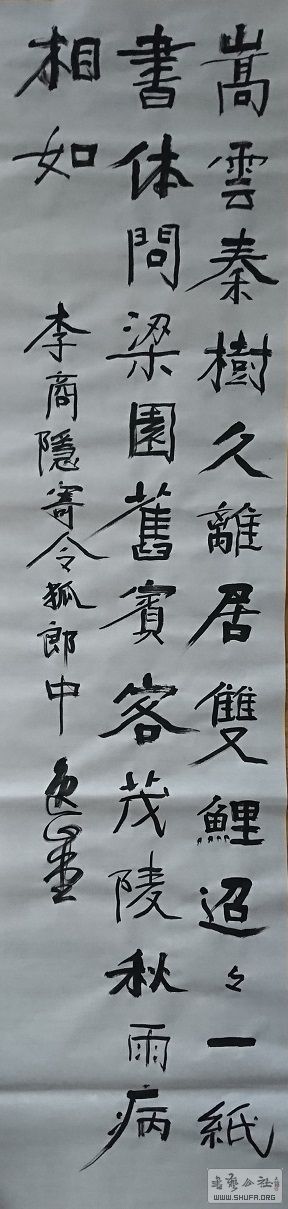 嵩雲秦樹久離居雙鯉迢々一紙
書休問梁園舊賓客茂陵秋雨病
相如
李商隱寄令狐郎中
WWW.SHUFA.ORG